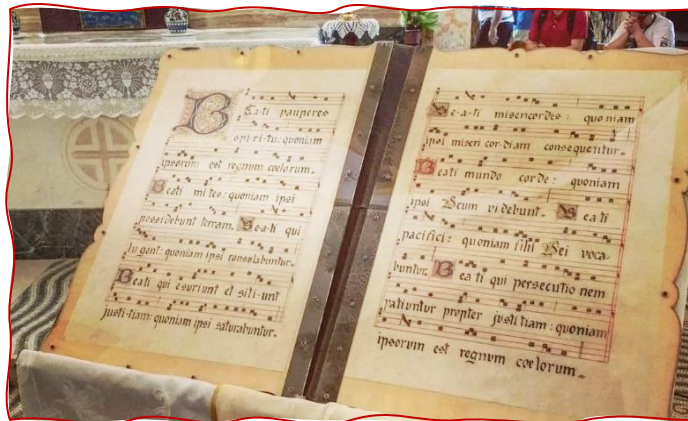 Bea-ti pauperes
spi-ri-tu: quoniam
ipsorum est regnum coelorum.
Beati mi-tes: quoniam ipsi
possidebunt terram. Be-a-ti qui
lugent: quoniam ipsi consolabuntur.
Beati qui esuriunt et siti-unt
justi-tiam: quoniam ipsi saturabuntur.
Be-a-ti misericordes: quoniam
ipsi miseri cor diam consequentur.
Beati mundo cor de: quoniam
ipsi Deum vi debunt. Bea ti
pacifici: quoniam filii Dei voca-
buntur. Bea ti qui persecutio nem
patiuntur propter justi tiam: quoniam
ipsorum est regnum coelorum.